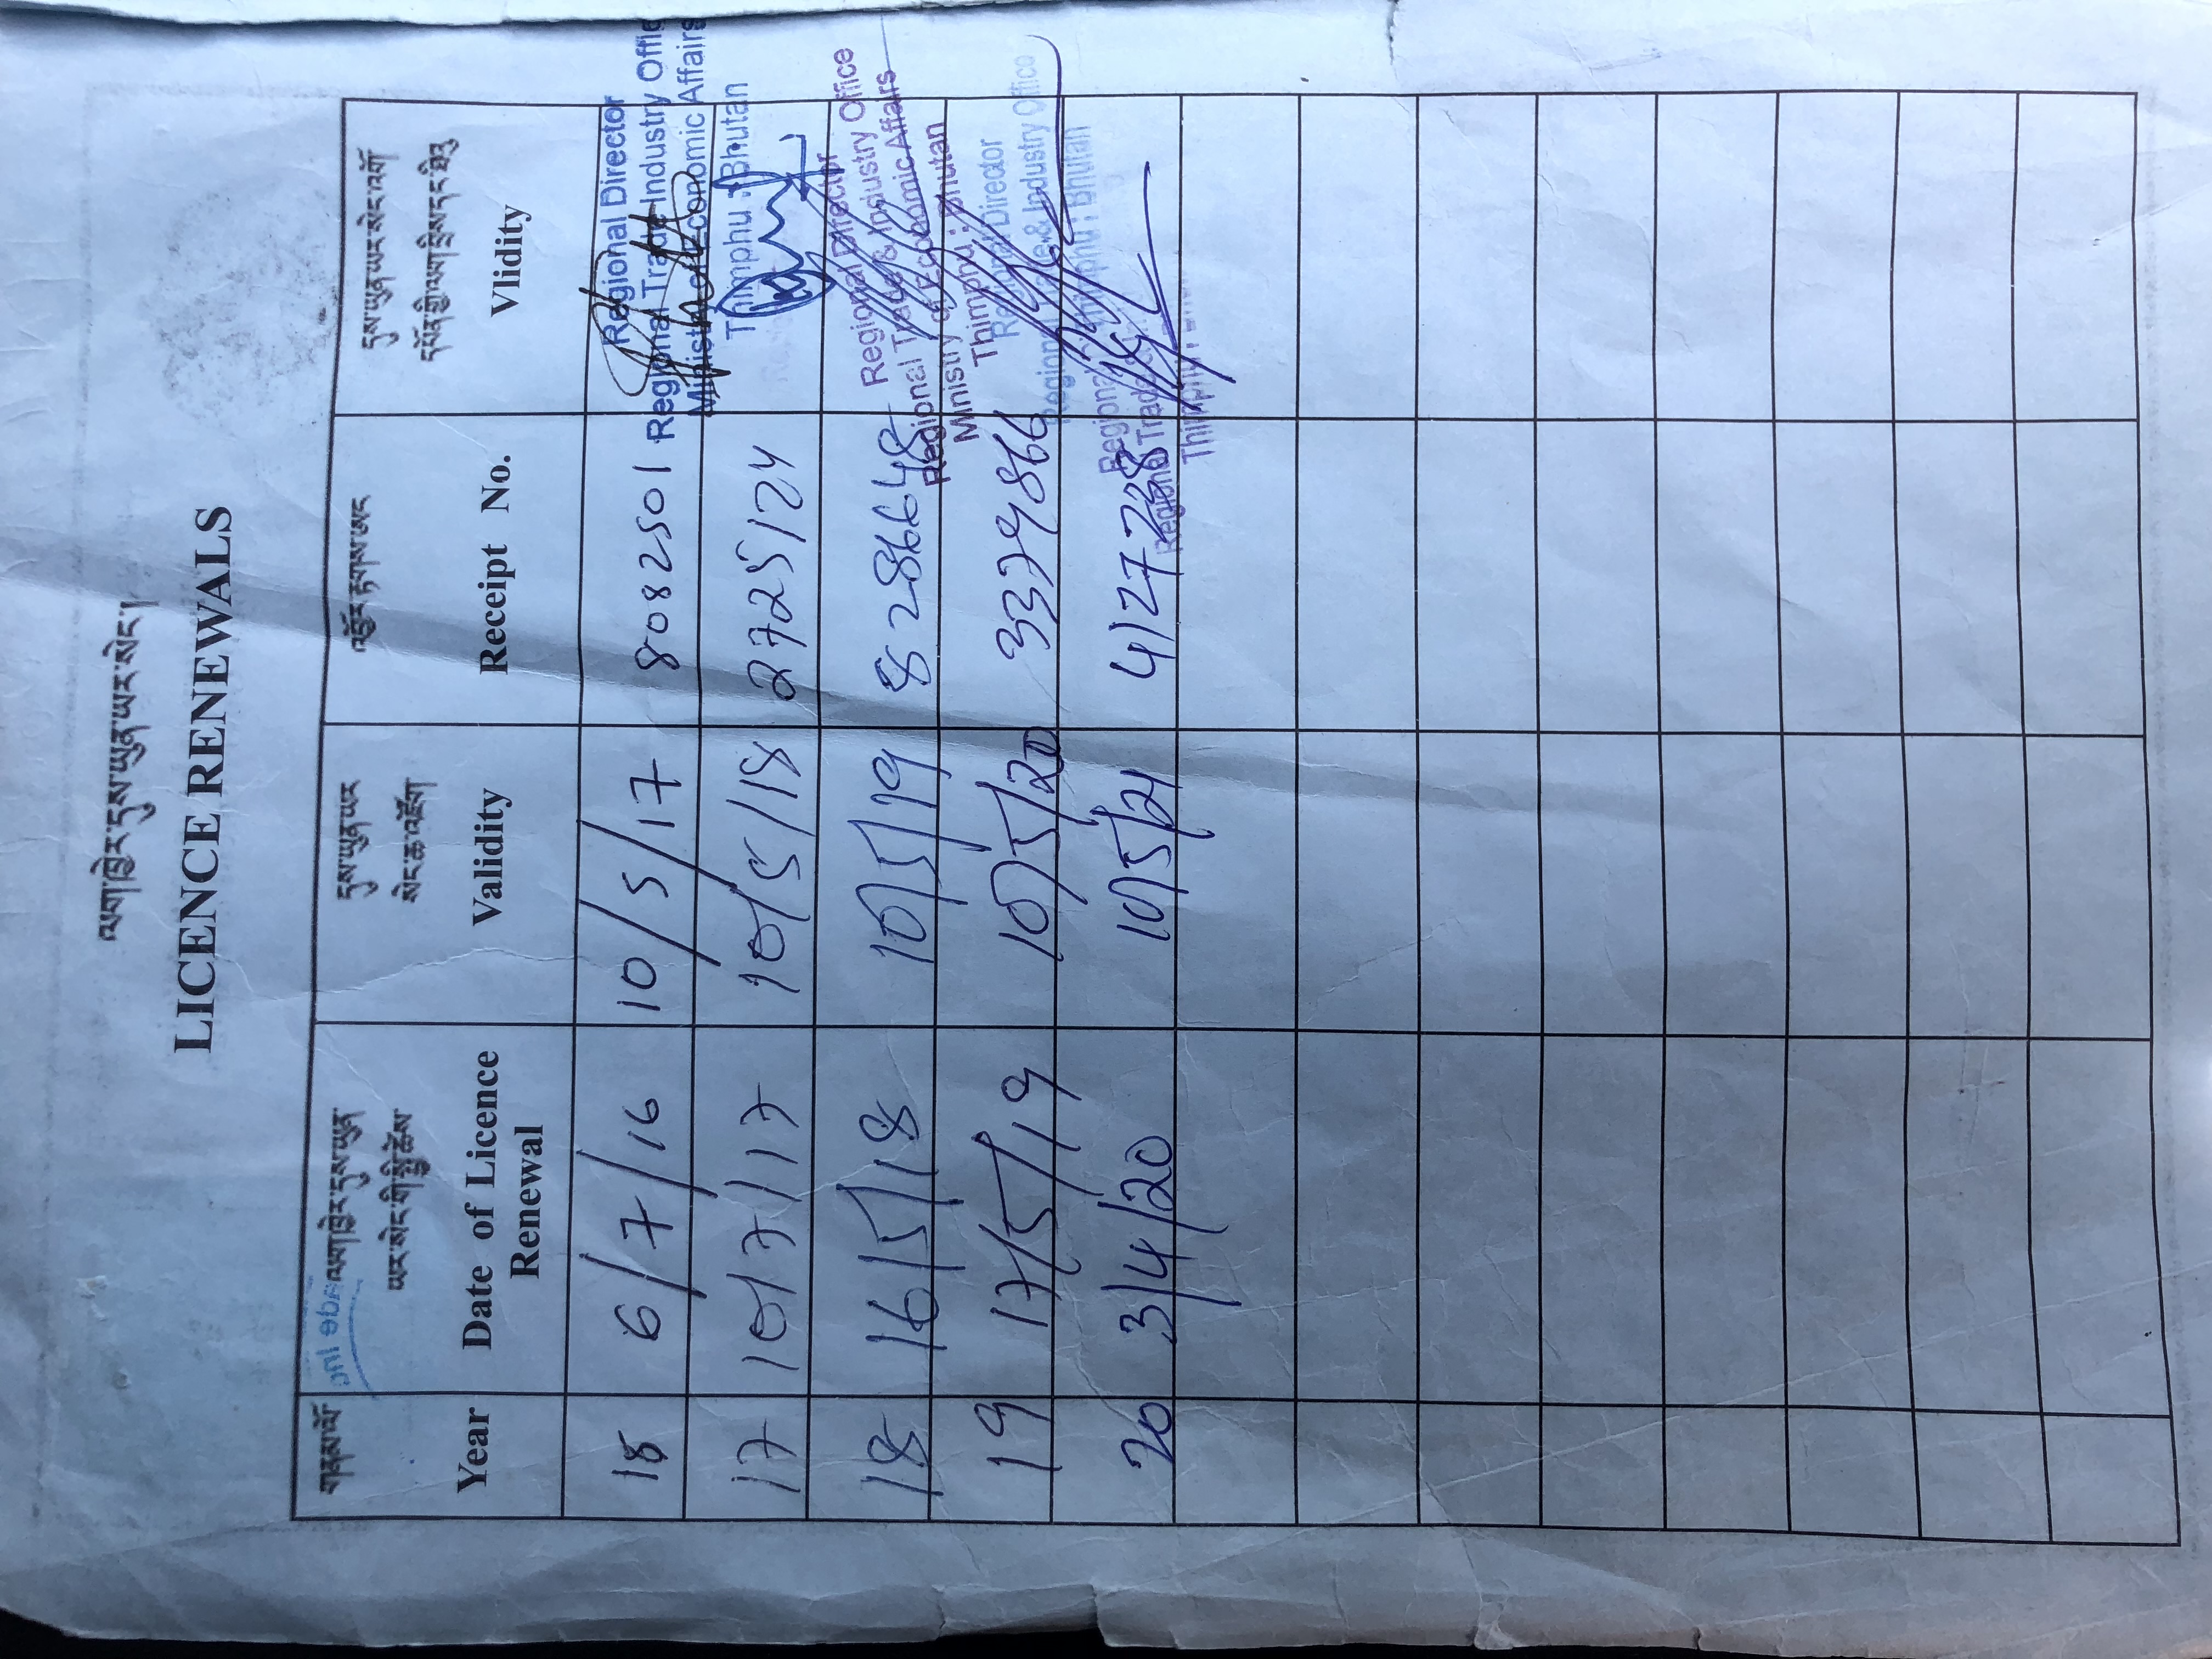 ལག་ཁྱེར་དུས་ཡུན་ཡར་སེང་།
LICENCE RENEWALS
གནམ་ལོ
ལག་ཁྱེར་དུས་ཡུན་
ཡར་སེང་གི་སྤྱི་ཚེས
དུས་ཡུན་ཡར
སེང་ཆ་འཇོག
འབྱོར་རྟགས་ཨང
དུས་ཡུན་ཡར་སེང་འགོ་
དཔོན་གྱི་ལག་བྲིས་དང་ཐིའུ
Year
Date of Licence
Renewal
Validity
Receipt No.
Vlidity
6/7/16 10/5/17 8082501
Regional Director
Regional Trade Industry Offic
Ministry of Economic Affairs
Thimphu : Bhutan
17 10/7/17 10/5/18 2725124
18 16/5/18 10/5/19 8286648
Regional Director
Regional Trade & Industry Office
Ministry of Economic Affairs
Thimphu : Bhutan
19 17/5/19 10/5/20 3379866
Regional Director
Regional Trade & Industry Office
Thimphu : Bhutan
20 3/4/20 10/5/21 4127238
Regional
Regional Trade &
Thimphu :